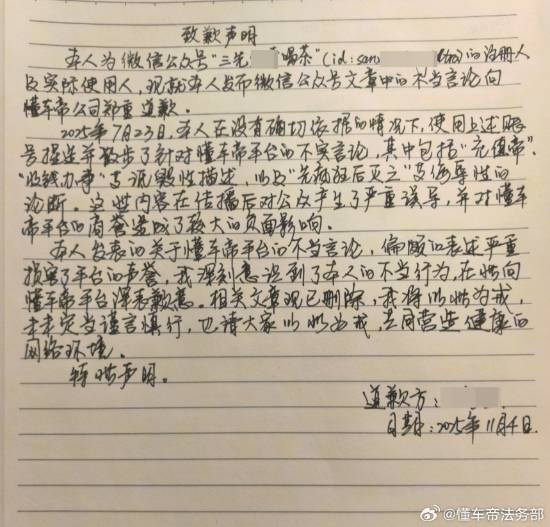 致歉声明
本人为微信公众号“三先 喝茶”(id:san )的注册人
及实际使用人,现就本人发布微信公众号文章中的不当言论向
懂车帝公司郑重道歉。
2025年7月23日,本人在没有确切依据的情况下,使用上述账
号捏造并散步了针对懂车帝平台的不实言论,其中包括“充值帝”、
“收钱办事”等诋毁性描述,以及“先 后灭之”等侮辱性的
论断。这些内容在传播后对公众产生了严重误导,并对懂车
帝平台的商誉造成了较大的负面影响。
本人发表的关于懂车帝平台的不当言论,偏颇的表述严重
损害了平台的声誉。我深刻意识到了本人的不当行为,在此向
懂车帝平台深表歉意。相关文章现已删除,我将以此为戒,
未来定当谨言慎行,也请大家以此为戒,共同营造健康的
网络环境。
特此声明。
道歉方:
日期:2025年11月4日
@懂车帝法务部